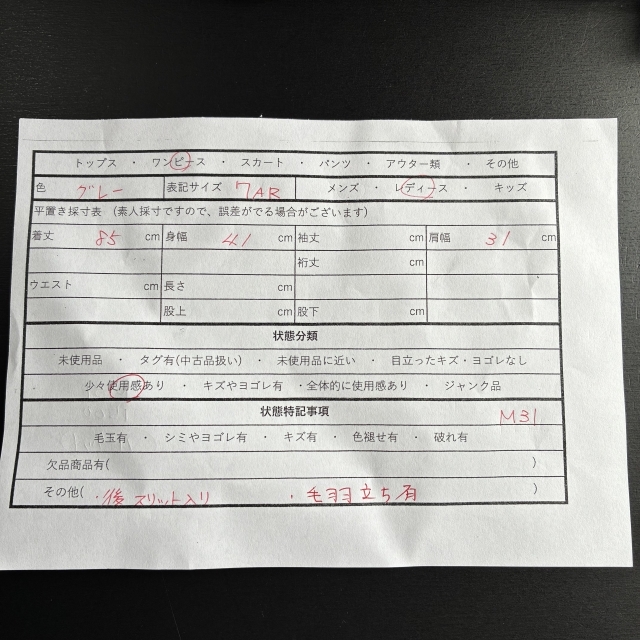 トップス ・ ワンピース ・ スカート ・ パンツ ・ アウター類 ・ その他
色 グレー 表記サイズ 7AR メンズ ・ レディース ・ キッズ
平置き採寸表 (素人採寸ですので、誤差がでる場合がございます)
着丈 85 cm 身幅 41 cm 袖丈 cm 肩幅 31 cm
裄丈 cm
ウエスト cm 長さ cm
股上 cm 股下 cm
状態分類
未使用品 ・ タグ有(中古品扱い) ・ 未使用品に近い ・ 目立ったキズ・ヨゴレなし
少々使用感あり ・ キズやヨゴレ有 ・全体的に使用感あり ・ ジャンク品
状態特記事項 M31
毛玉有 ・ シミやヨゴレ有 ・ キズ有 ・ 色褪せ有 ・ 破れ有
欠品商品有( )
その他( ・後スリット入り ・毛羽立ち有 )